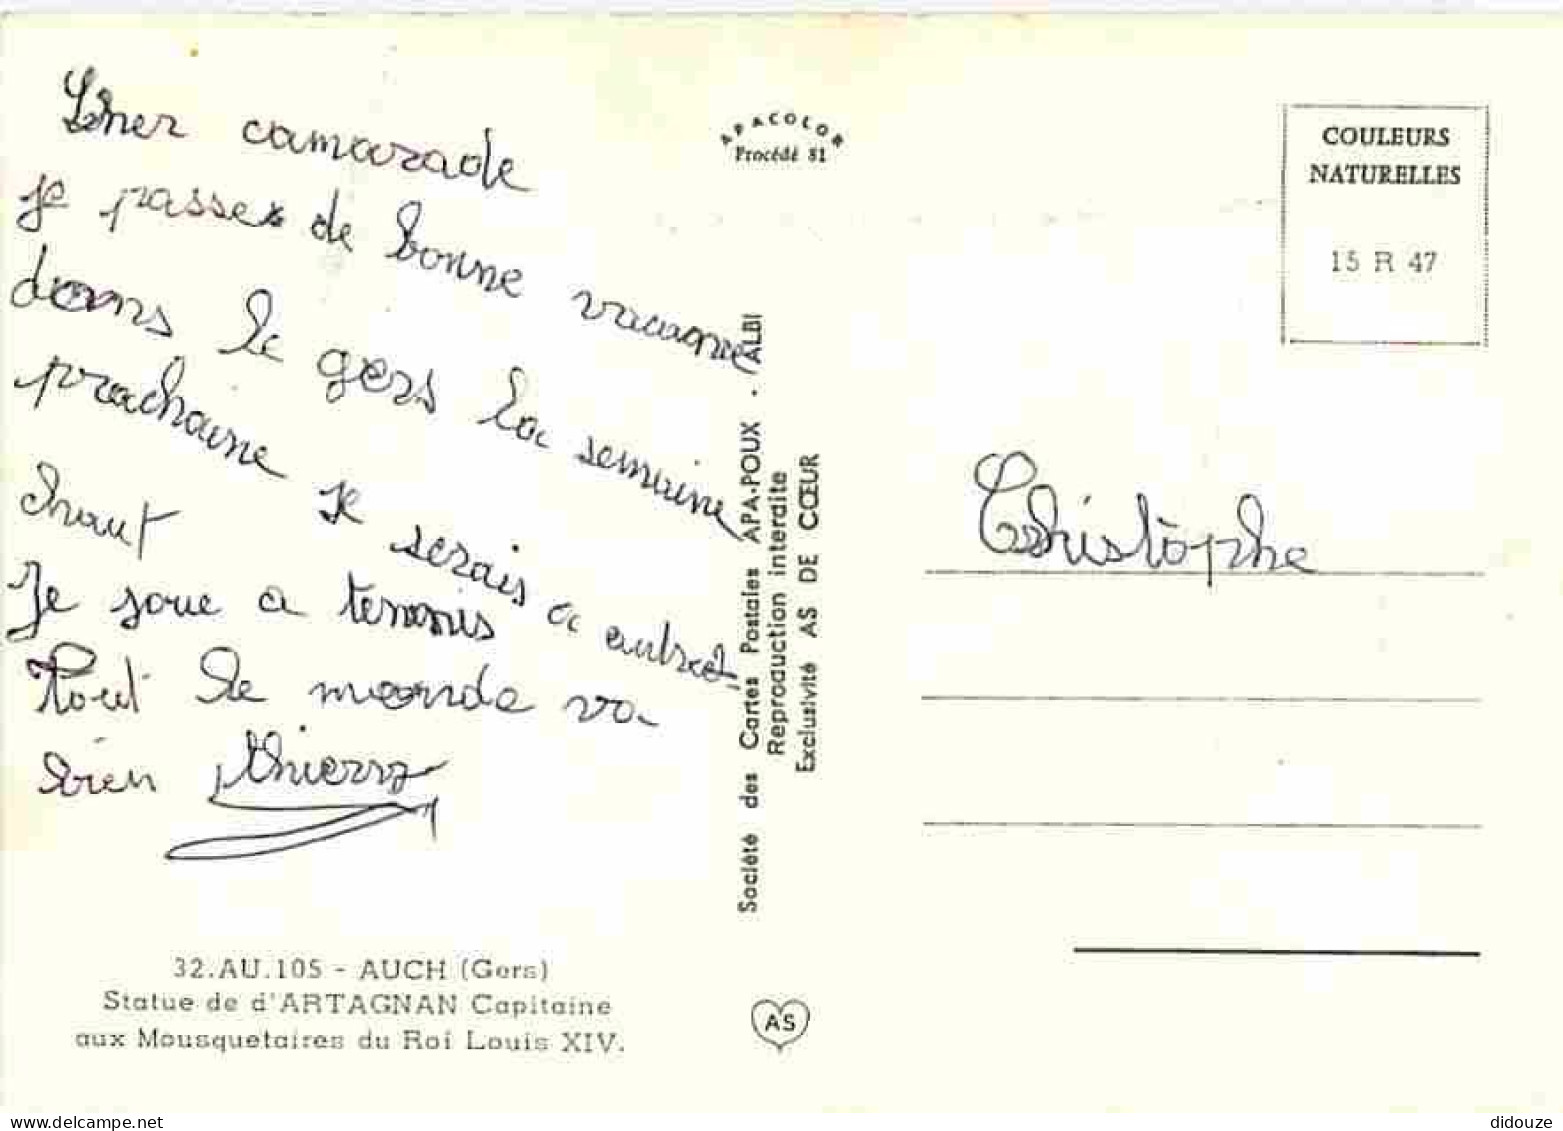 Cher camarade
je passe de bonne vacance
dans le gers la semaine
prochaine je serais a
chaut
Je joue a tennis
Tout le monde va
bien thierry
32.AU.105 - AUCH (Gers)
Statue de d'ARTAGNAN Capitaine
aux Mousquetaires du Roi Louis XIV.
APACOLOR
Procédé 81
Société des Cartes Postales APA-POUX - ALBI
Reproduction interdite
Exclusivité AS DE CŒUR
AS
COULEURS
NATURELLES
15 R 47
Christophe
delcampe.net
didouze